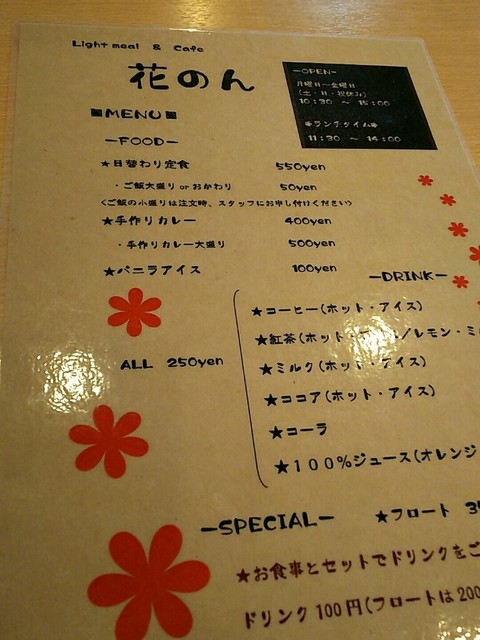 Light meal & Cafe
花のん
-OPEN-
月曜日~金曜日
(土・日・祝休み)
10:30 ~ 15:00
*ランチタイム*
11:30 ~ 14:00
■MENU■
-FOOD-
★日替わり定食 550yen
・ご飯大盛り or おかわり 50yen
<ご飯の小盛りは注文時、スタッフにお申し付けください>
★手作りカレー 400yen
・手作りカレー大盛り 500yen
★バニラアイス 100yen
-DRINK-
ALL 250yen
★コーヒー(ホット・アイス)
★紅茶(ホット・アイス/レモン・ミ
★ミルク(ホット・アイス)
★ココア(ホット・アイス)
★コーラ
★100%ジュース(オレンジ
-SPECIAL-
★フロート 3
★お食事とセットでドリンクをご
ドリンク100円(フロートは200